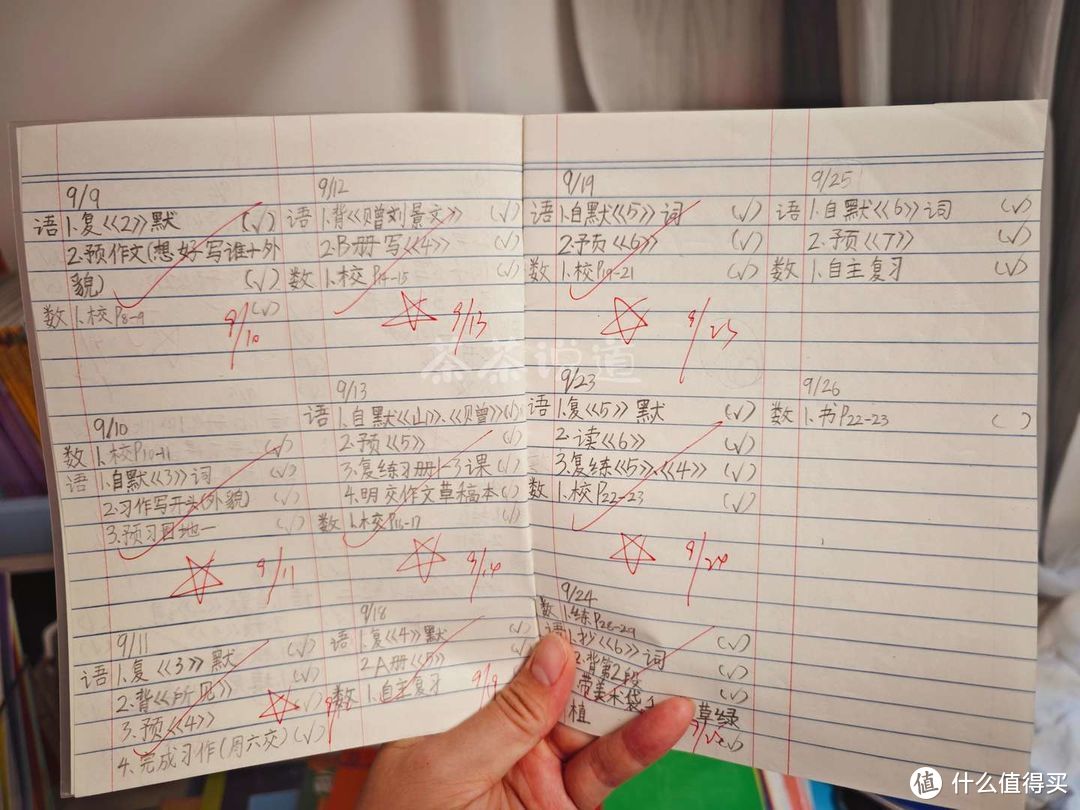 9/9
语 1.复《2》默 (√)
2.预作文(想好写谁+外
貌) (√)
数 1.校P8-9 (√)
9/10
9/10
数 1.校P10-11 (√)
语 1.自默《3》词 (√)
2.习作写开头(外貌) (√)
3.预习园地一 (√)
9/11
9/11
语 1.复《3》默 (√)
2.背《所见》 (√)
3.预《4》 (√)
4.完成习作(周六交) (√)
9/12
语 1.背《赠刘景文》 (√)
2.B册写《4》 (√)
数 1.校P14-15 (√)
9/13
9/13
语 1.自默《山》、《赠》(√)
2.预《5》 (√)
3.复练习册1-3课 (√)
4.明交作文草稿本(√)
数 1.校P16-17 (√)
9/14
9/18
语 1.复《4》默 (√)
2.A册《5》 (√)
数 1.自主复习
9/19
语 1.自默《5》词 (√)
2.预《6》 (√)
数 1.校P19-21 (√)
9/23
9/23
语 1.复《5》默 (√)
2.读《6》 (√)
3.复练《5》、《4》 (√)
数 1.校P22-23 (√)
9/24
9/24
数 1.练P28-29
语 1.抄《6》词 (√)
2.背第2段 (√)
带美术袋 草绿
植
9/25
语 1.自默《6》词 (√)
2.预《7》 (√)
数 1.自主复习 (√)
9/26
数 1.书P22-23 ( )
茶茶说道
值 什么值得买